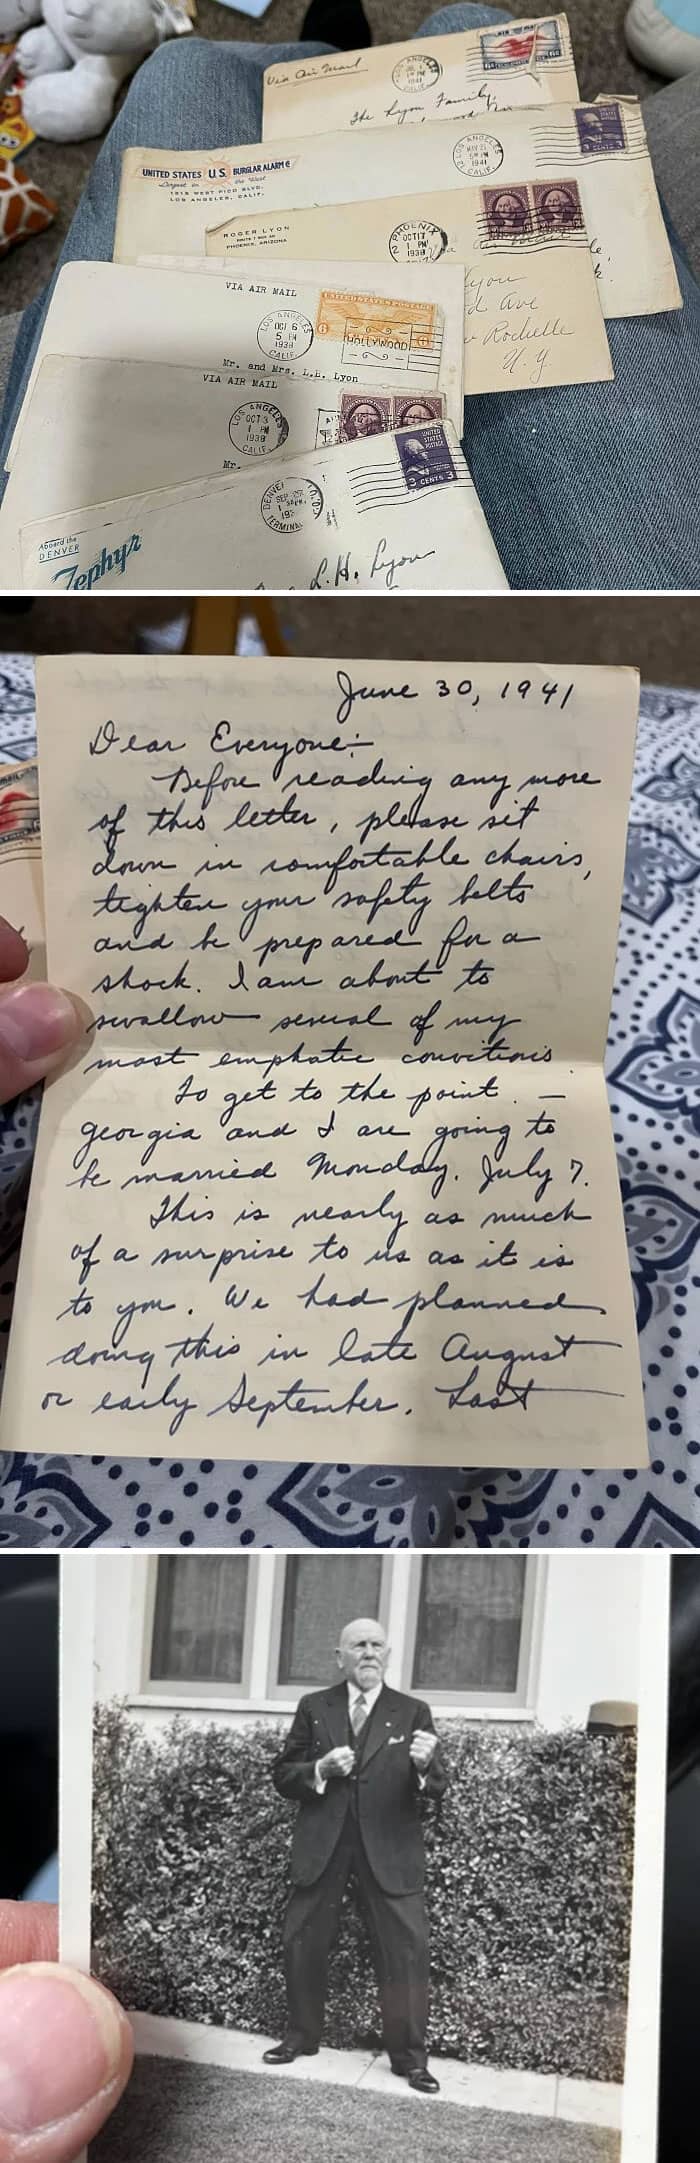 Via Air Mail
LOS ANGELES
1941
CALIF.
The Lyon Family,
LOS ANGELES
MAY 21
5 PM
1941
CALIF.
3 CENTS 3
UNITED STATES U.S. BURGLAR ALARM Co
Largest in the West
1919 WEST PICO BLVD.
LOS ANGELES, CALIF.
ROGER LYON
PHOENIX, ARIZONA
2 PHOENIX
OCT 17
1 PM
1938
Lyon
d Ave
w Rochelle
N.Y.
VIA AIR MAIL
LOS ANGELES
OCT 6
5 PM
1938
CALIF.
UNITED STATES POSTAGE
6 6
HOLLYWOOD
Mr. and Mrs. L.H. Lyon
VIA AIR MAIL
LOS ANGELES
OCT 3
1 PM
1938
CALIF.
Mr.
DENVER
SEP
TERMINAL
UNITED
STATES
POSTAGE
3 CENTS 3
Aboard the
DENVER
Zephyr
L.H. Lyon
June 30, 1941
Dear Everyone:—
Before reading any more
of this letter, please sit
down in comfortable chairs,
tighten your safety belts
and be prepared for a
shock. I am about to
swallow several of my
most emphatic convitions
To get to the point. —
Georgia and I are going to
be married Monday. July 7.
This is nearly as much
of a surprise to us as it is
to you. We had planned
doing this in late August
or early September. Last